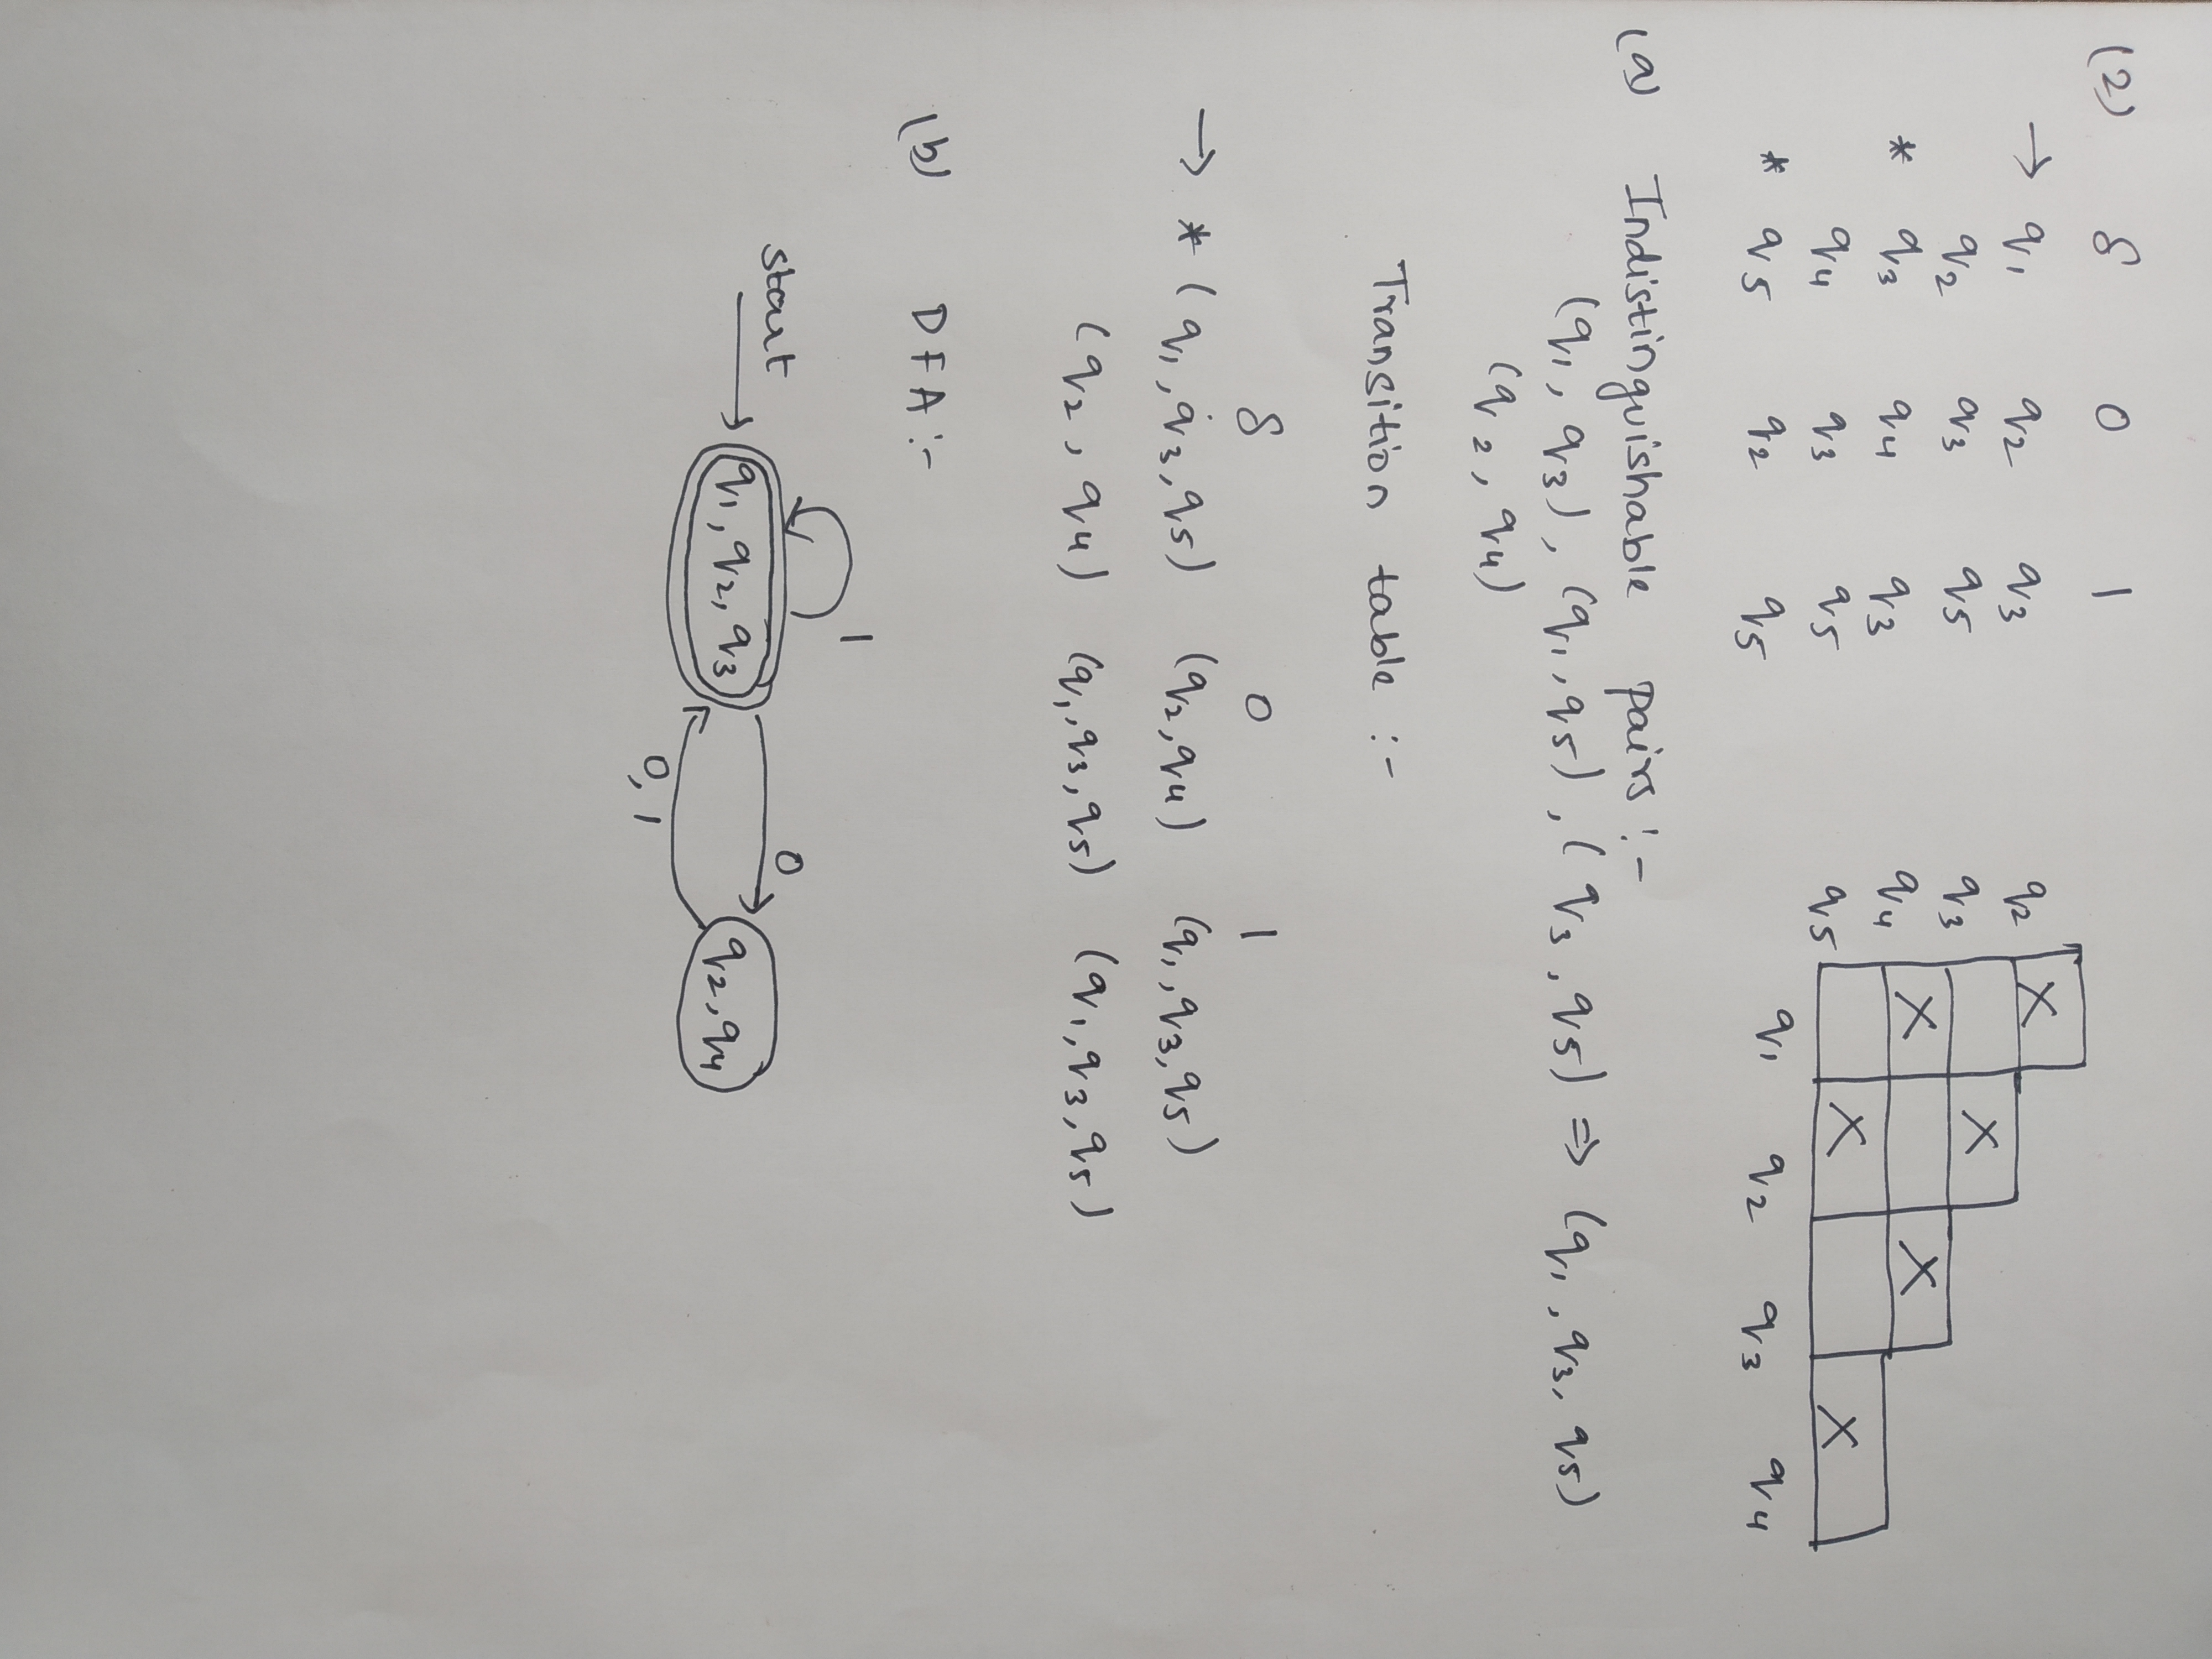 (2) δ 0 1
→ q₁ q₂ q₃
q₂ q₃ q₅
* q₃ q₄ q₃
q₄ q₃ q₅
* q₅ q₂ q₅
q₂ X
q₃ X
q₄ X X
q₅ X X
q₁ q₂ q₃ q₄
(a) Indistinguishable pairs :-
(q₁, q₃), (q₁, q₅), (q₃, q₅) ⇒ (q₁, q₃, q₅)
(q₂, q₄)
Transition table :-
δ 0 1
→ * (q₁, q₃, q₅) (q₂, q₄) (q₁, q₃, q₅)
(q₂, q₄) (q₁, q₃, q₅) (q₁, q₃, q₅)
(b) DFA :-
1
start 0
q₁, q₂, q₃ q₂, q₄
0, 1